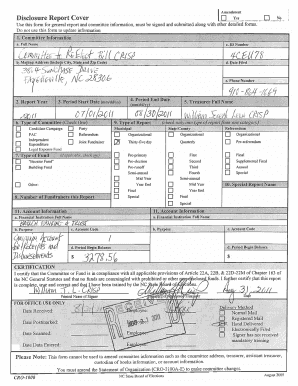 Amendment
Disclosure Report Cover
Yes No
Use this form for general report and committee information, must be signed and submitted along with other detailed forms.
Do not use this form to update information
1. Committee Information
a. Full Name
c. ID Number
Committee to ReElect Bill CRISP
b. Mailing Address (include City, State and Zip Code)
d. Date Filed
Drive
NC 28306
e. Phone Number
2. Report Year
3. Period Start Date
4. Period End Date
5. Treasurer Full Name
2011
07/01/2011
08/30/2011
6. Type of Committee
9. Type of Report
Candidate Campaign
Party
Municipal
State/County
Referendum
PAC
Referendum
Organizational
Organizational
Organizational
Independent Expenditure
Joint Fundraiser
Thirty-five day
Quarterly
Pre-referendum
Legal Expense Fund
Pre-primary
First
Final
7. Type of Fund
Pre-election
Second
Supplemental Final
Pre-runoff
Third
Annual
Building Fund
Semi-annual
Fourth
Special
Mid Year
Semi-annual
Other:
Year End
Mid Year
10. Special Report Name
Final
Year End
8. Number of Fundraisers this Report
Special
Final
Special
11. Account Information
11. Account Information
a. Financial Institution Full Name
a. Financial Institution Full Name
b. Purpose
c. Account Code
b. Purpose
c. Account Code
1
Disbursements
d. Period Begin Balance
d. Period Begin Balance
$ 3278.56
$
CERTIFICATION
I certify that the Committee or Fund is in compliance with all applicable provisions of Article 22A, 22B, & 22D-22M of Chapter 163 of
the NC General Statutes and that no funds are commingled with prohibited or other non-disclosed funds. I further certify that this report is
complete, true and correct and that I have been trained by the NC State Board of Elections.
Aug 31, 2011
Printed Name of Signer
Date
FOR OFFICE USE ONLY
Date Received:
Delivery Method
Normal Mail
Date Postmarked:
Registered Mail
Hand Delivered
Date Scanned:
Electronically Filed
Signer has not received
Date Data Entered:
Employee:
mandatory training
Please Note: This form cannot be used to amend committee information such as the committee address, treasurer, assistant treasurer,
custodian of books information, or account information.
You must amend the Statement of Organization (CRO-2100A-E) to make committee changes.
CRO-1000
NC State Board of Elections
August 2008